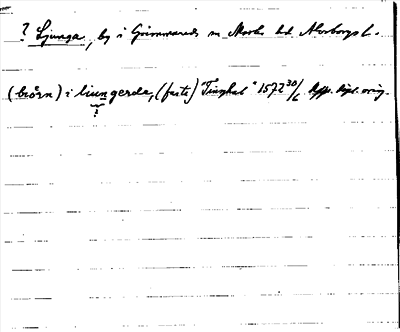 ? Ljunga, by i Grimmareds sn Marks hd Älvsborgs l.
(biörn) i liungerda, (faste) "Tingkal" 1572 30/6 App. dipl. orig.
?